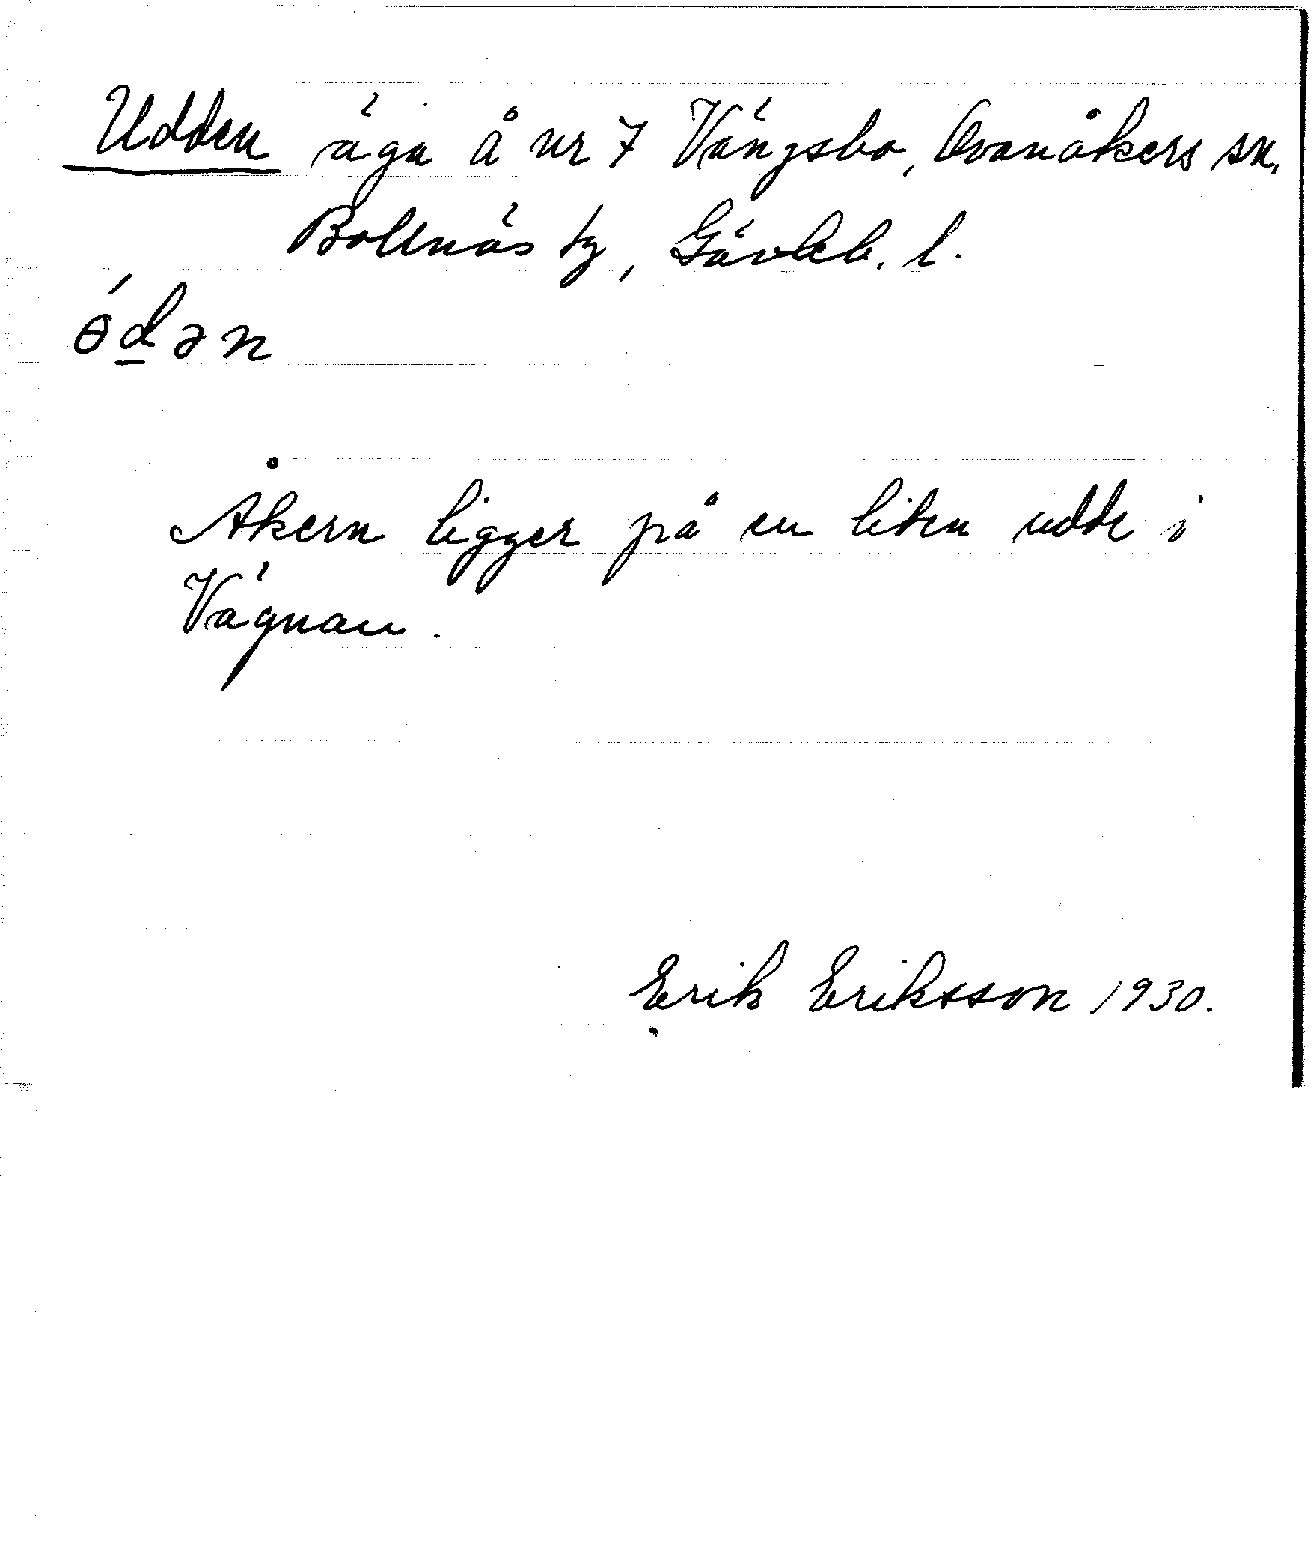 Udden äga å nr 7 Vängsbo, Ovanåkers sn.
Bollnäs tg, Gävleb. l.
ɵ́d̲ən
Åkern ligger på en liten udde i
Vägnan.
Erik Eriksson 1930.